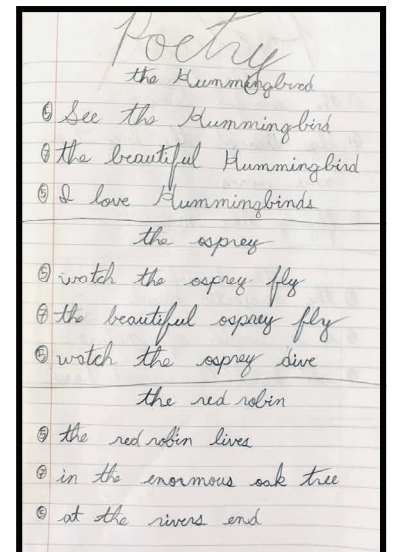 Poetry
the Hummingbird
⑤ See the Hummingbird
⑦ the beautiful Hummingbird
⑤ I love Hummingbirds
the osprey
⑤ watch the osprey fly
⑦ the beautiful osprey fly
⑤ watch the osprey dive
the red robin
⑤ the red robin lives
⑦ in the enormous oak tree
⑤ at the rivers end